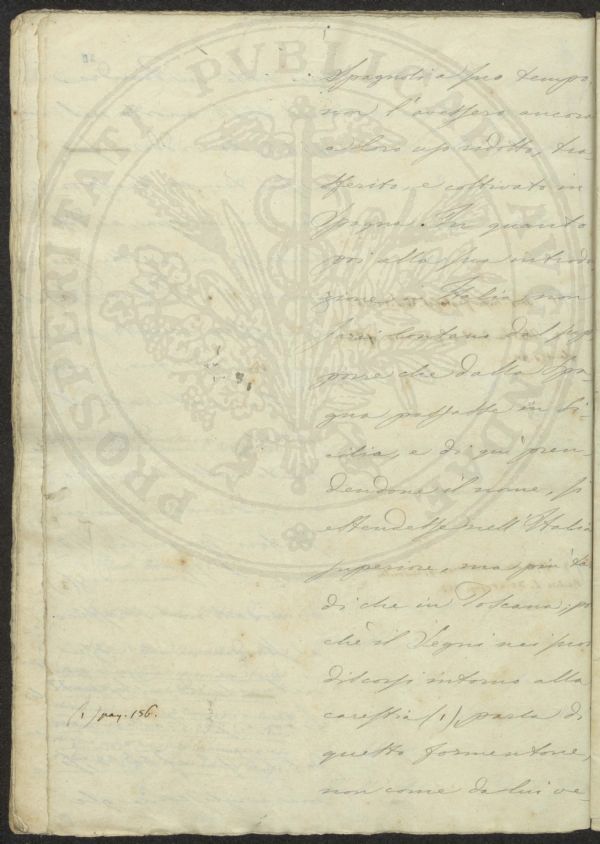 Spagnoli a suo tempo
non l'avessero ancora
a loro uso ridotto, tra
sferito, e coltivato in
Spagna. In quanto
poi alla sua introdu
zione in Italia, non
sarei lontano dal sup
porre che dalla Spa-
gna passasse in Si-
cilia, e di qui pren-
dendone il nome, si
estendesse nell'Italia
superiore, ma più tar
di che in Toscana; per
chè il Segni nei suoi
discorsi intorno alla
carestia (1), parla di
questo formentone,
non come da lui ve-
(1) pag. 156.
PROSPERITATI PUBLICAE AUGENDAE